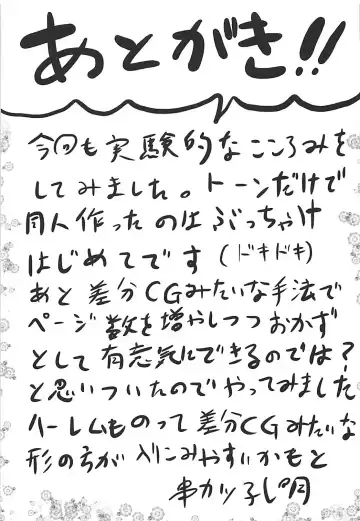 あとがき!!
今回も実験的なこころみを
してみました。トーンだけで
同人作ったのはぶっちゃけ
はじめてです(ドキドキ)
あと差分CGみたいな手法で
ページ数を増やしつつおかず
として有意気にできるのでは?
と思いついたのでやってみました
ハーレムものって差分CGみたいな
形の方が入りこみやすいかもと
串カツ子